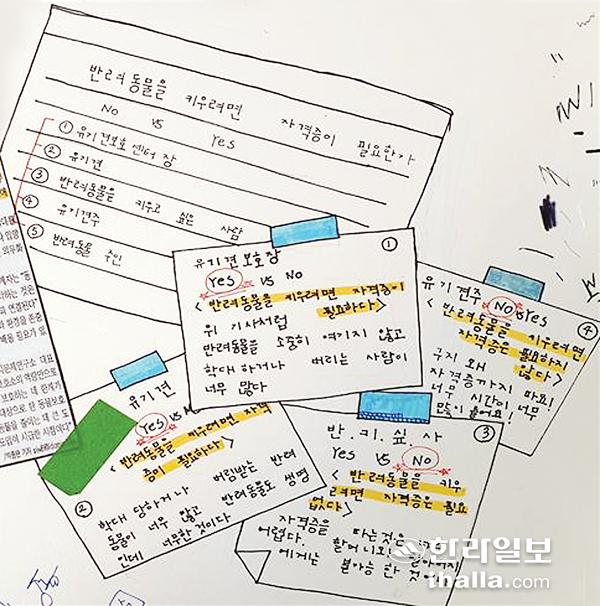 반려동물을 키우려면 자격증이 필요한가
No vs Yes
① 유기견보호 센터 장
② 유기견
③ 반려동물을 키우고 싶은 사람
④ 유기견주
⑤ 반려동물 주인
①
유기견 보호장
Yes vs No
< 반려동물을 키우려면 자격증이
필요하다 >
위 기사처럼
반려동물을 소중히 여기지 않고
학대 하거나 버리는 사람이
너무 많다
④
유기견주 No vs Yes
< 반려동물을 키우려면
자격증은 필요하지
않다 >
구지 왜
자격증까지 따요!
너무 시간이 너무
많이 들어요!
유기견
Yes vs No
< 반려동물을 키우려면 자격
증이 필요하다 >
②
학대 당하거나 버림받는 반려
동물이 너무 많고 반려동물도 생명
인데 너무한 것이다
③
반. 키. 싶. 사
Yes vs No
< 반려동물을 키우
려면 자격증은 필요
없다 >
자격증을 따는것은
어렵다. 할머니와
에게는 불가능 한 것
한라일보
ihalla.com